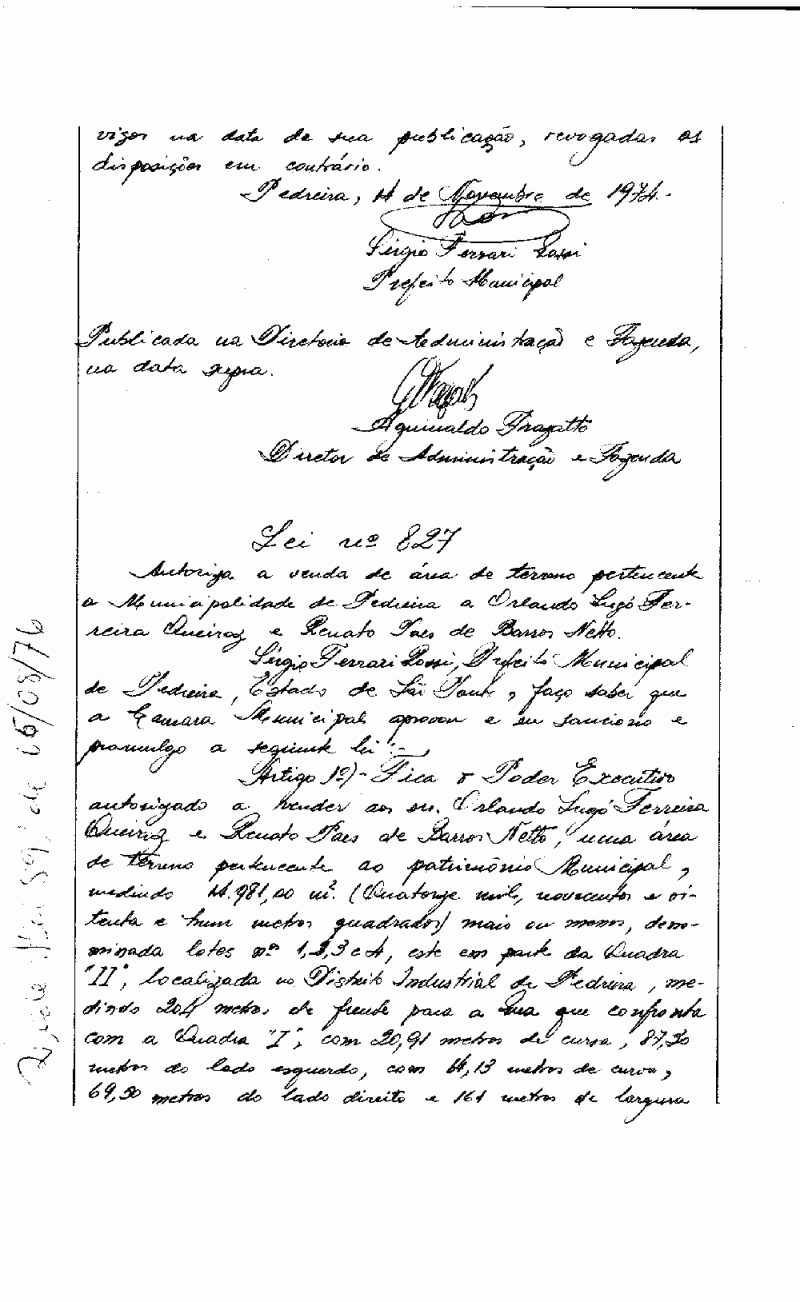 vigor na data de sua publicação, revogadas as
disposições em contrário.
Pedreira, 14 de Novembro de 1974.
Sérgio Ferrari Rossi
Prefeito Municipal
Publicada na Diretoria de Administração e Fazenda,
na data supra.
Aguinaldo Fragatto
Diretor de Administração e Fazenda
Lei nº 827
Autoriza a venda de área de terreno pertencente
a Municipalidade de Pedreira a Orlando Fer-
reira Queiroz e Renato Paes de Barros Netto.
Sérgio Ferrari Rossi, Prefeito Municipal
de Pedreira, Estado de São Paulo, faço saber que
a Câmara Municipal aprovou e eu sanciono e
promulgo a seguinte lei:-
Artigo 1º)- Fica o Poder Executivo
autorizado a vender aos srs. Orlando Ferreira
Queiroz e Renato Paes de Barros Netto, uma área
de terreno pertencente ao patrimônio Municipal,
medindo 14.981,00 m². (Quatorze mil, novecentos e oi-
tenta e hum metros quadrados) mais ou menos, deno-
minada lotes nºs 1,2,3 e 4, este em parte da Quadra
"II", localizada no Distrito Industrial de Pedreira, me-
dindo 204 metros de frente para a Rua que confronta
com a Quadra "I", com 20,91 metros de curva, 87,50
metros do lado esquerdo, com 14,13 metros de curva,
69,50 metros do lado direito e 161 metros de largura
de 16/08/76